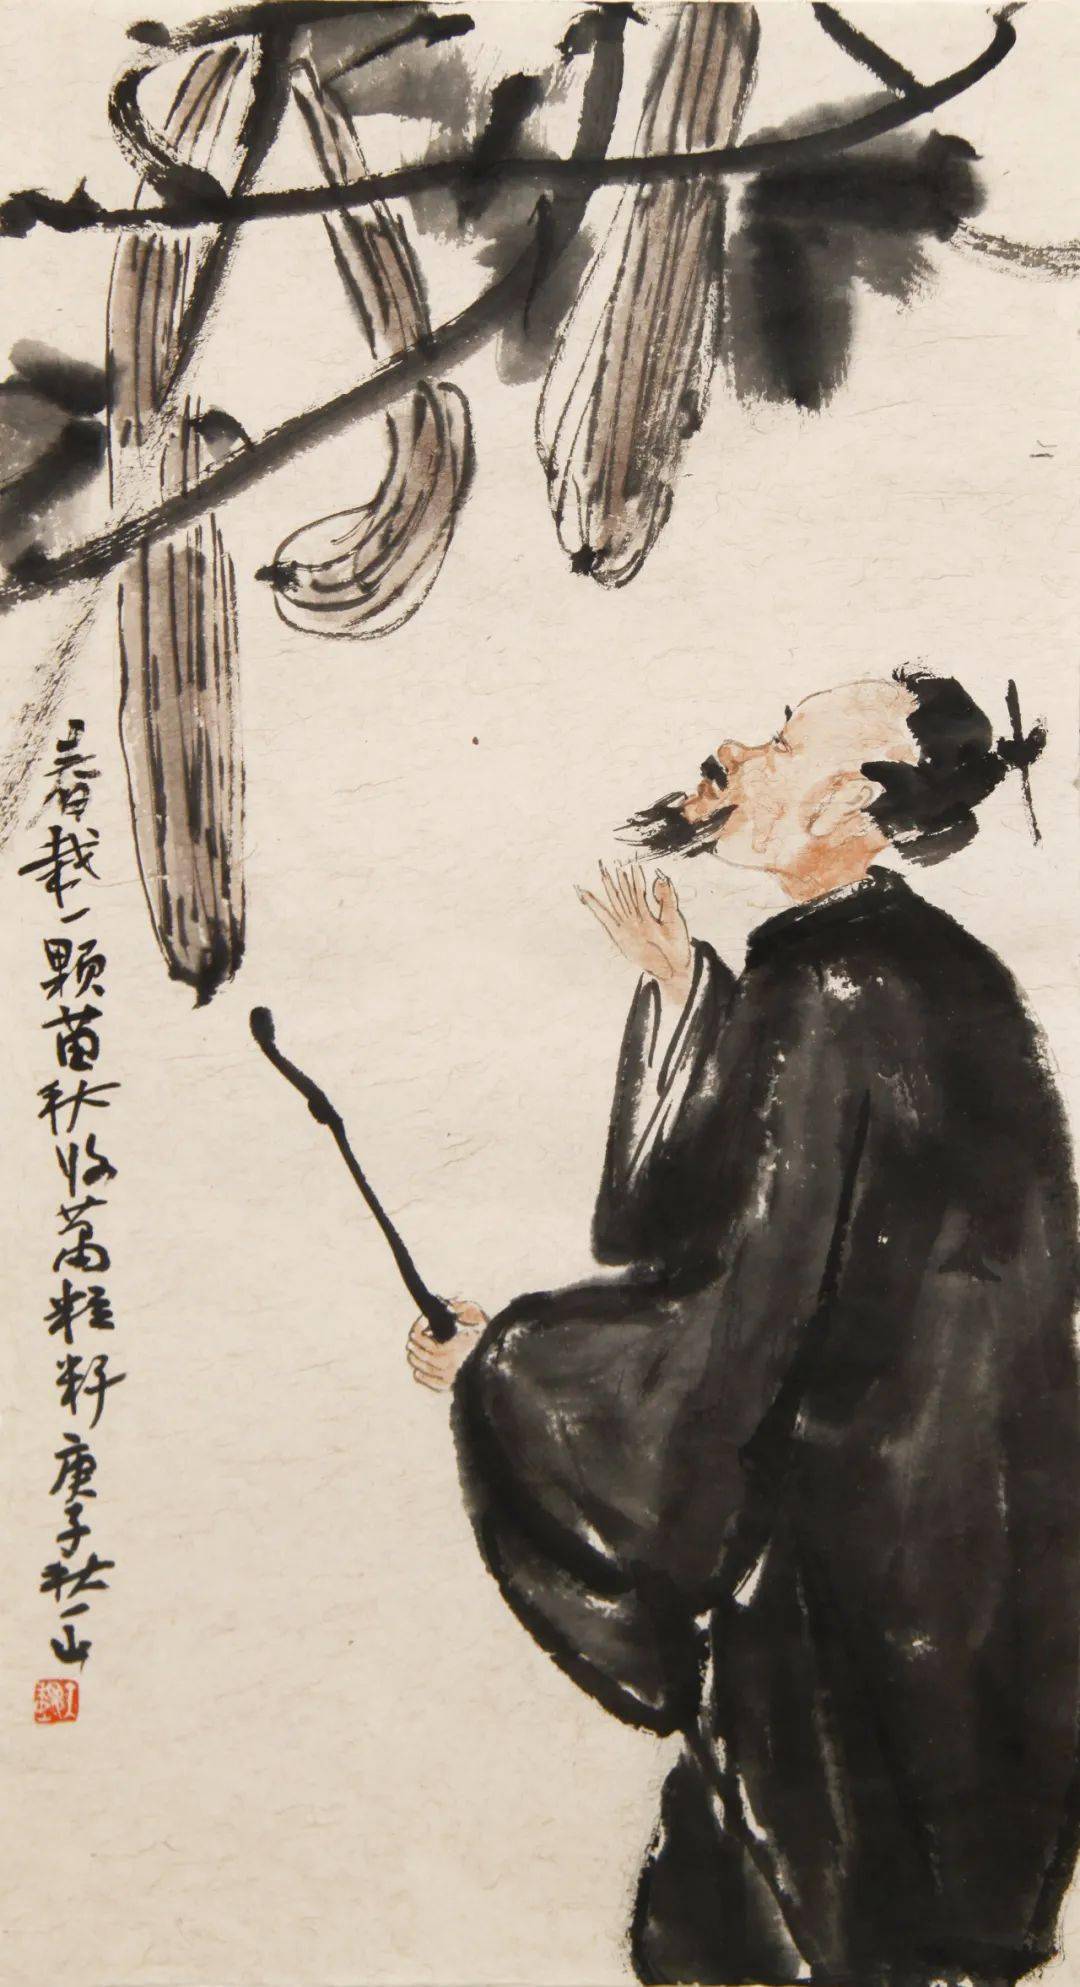 春栽一颗苗秋收萬粒籽庚子秋一山